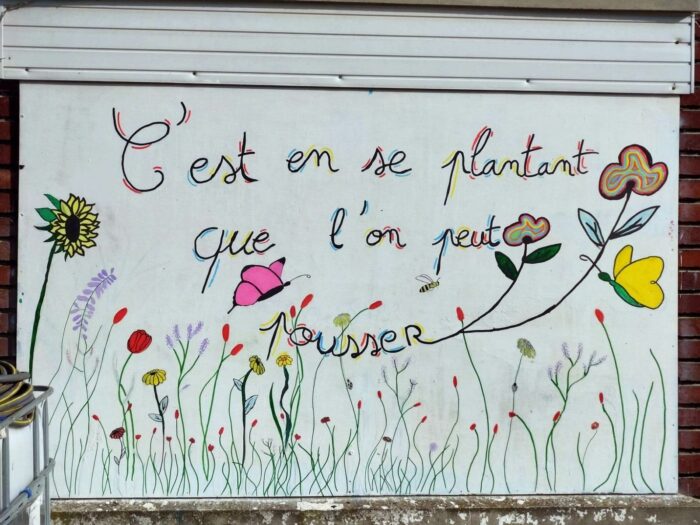 C'est en se plantant
que l'on peut
pousser